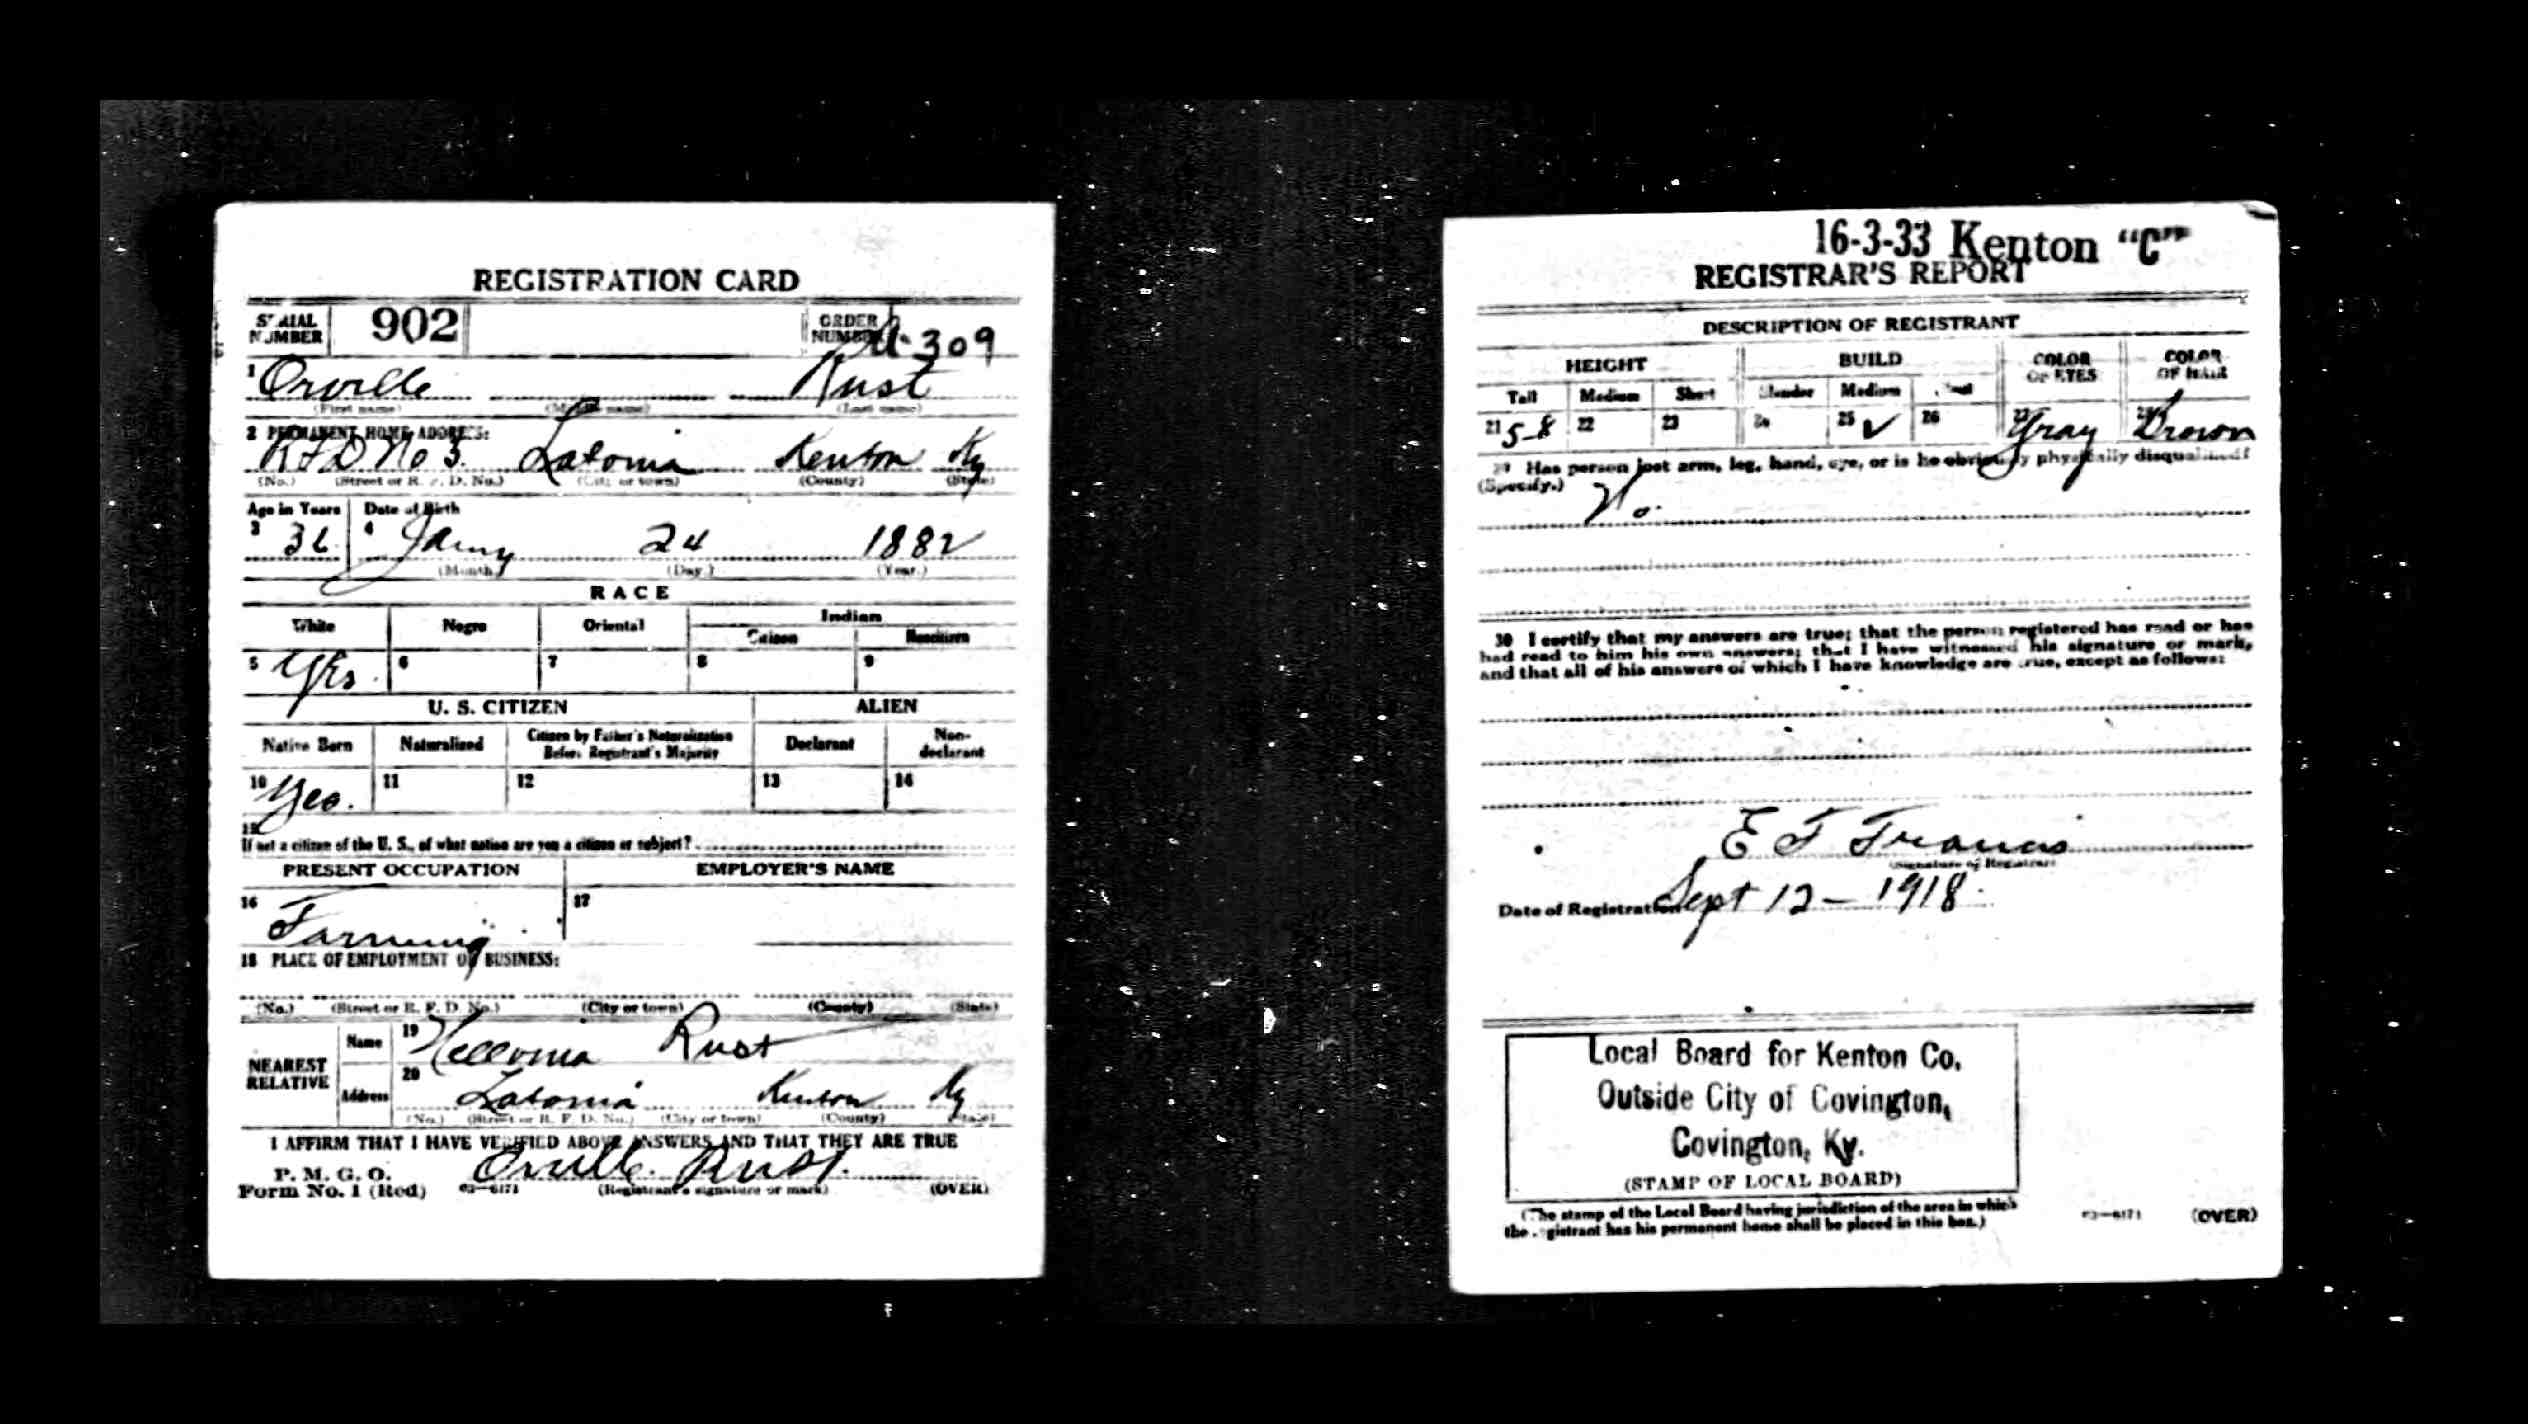 REGISTRATION CARD
SERIAL NUMBER 902 ORDER NUMBER A-309
1 Orville Rust
(First name) (Middle name) (Last name)
2 PERMANENT HOME ADDRESS:
RFD No 3. Latonia Kenton Ky
(No.) (Street or R. F. D. No.) (City or town) (County) (State)
Age in Years Date of Birth
3 36 4 Jany 24 1882
(Month.) (Day.) (Year.)
RACE
White Negro Oriental Indian
Citizen Noncitizen
5 Yes. 6 7 8 9
U. S. CITIZEN ALIEN
Native Born Naturalized Citizen by Father's Naturalization Before Registrant's Majority Declarant Non-declarant
10 Yes. 11 12 13 14
15
If not a citizen of the U. S., of what nation are you a citizen or subject?
PRESENT OCCUPATION EMPLOYER'S NAME
16 Farming 17
18 PLACE OF EMPLOYMENT OR BUSINESS:
(No.) (Street or R. F. D. No.) (City or town) (County) (State)
NEAREST RELATIVE
Name 19 Rust
Address 20 Latonia Kenton Ky
(No.) (Street or R. F. D. No.) (City or town) (County) (State)
I AFFIRM THAT I HAVE VERIFIED ABOVE ANSWERS AND THAT THEY ARE TRUE
P. M. G. O.
Form No. 1 (Red) 03—6171 Orville Rust.
(Registrant's signature or mark) (OVER)
16-3-33 Kenton "C"
REGISTRAR'S REPORT
DESCRIPTION OF REGISTRANT
HEIGHT BUILD COLOR OF EYES COLOR OF HAIR
Tall Medium Short Slender Medium Stout
21 5-8 22 23 24 25 ✓ 26 27 Gray 28 Brown
29 Has person lost arm, leg, hand, eye, or is he obviously physically disqualified?
(Specify.) No.
30 I certify that my answers are true; that the person registered has read or has
had read to him his own answers; that I have witnessed his signature or mark,
and that all of his answers of which I have knowledge are true, except as follows:
E F Francis
(Signature of Registrar)
Date of Registration Sept 12 - 1918.
Local Board for Kenton Co,
Outside City of Covington,
Covington, Ky.
(STAMP OF LOCAL BOARD)
(The stamp of the Local Board having jurisdiction of the area in which
the registrant has his permanent home shall be placed in this box.)
03—6171 (OVER)